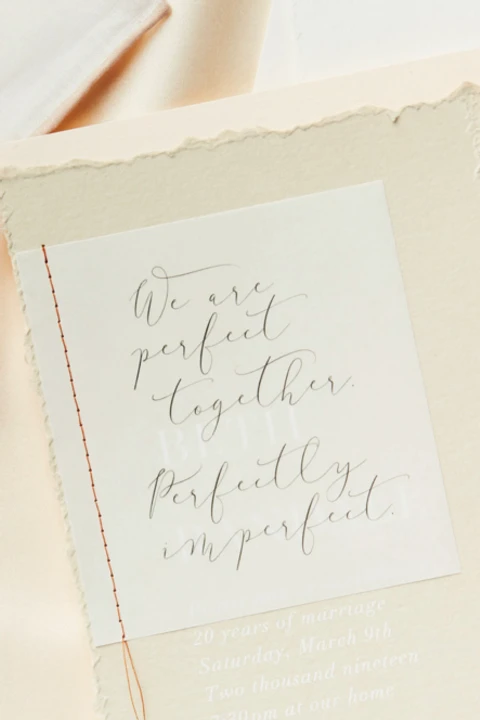 We are
perfect
together.
Perfectly
imperfect.
20 years of marriage
Saturday, March 9th
Two thousand nineteen
7:30pm at our home